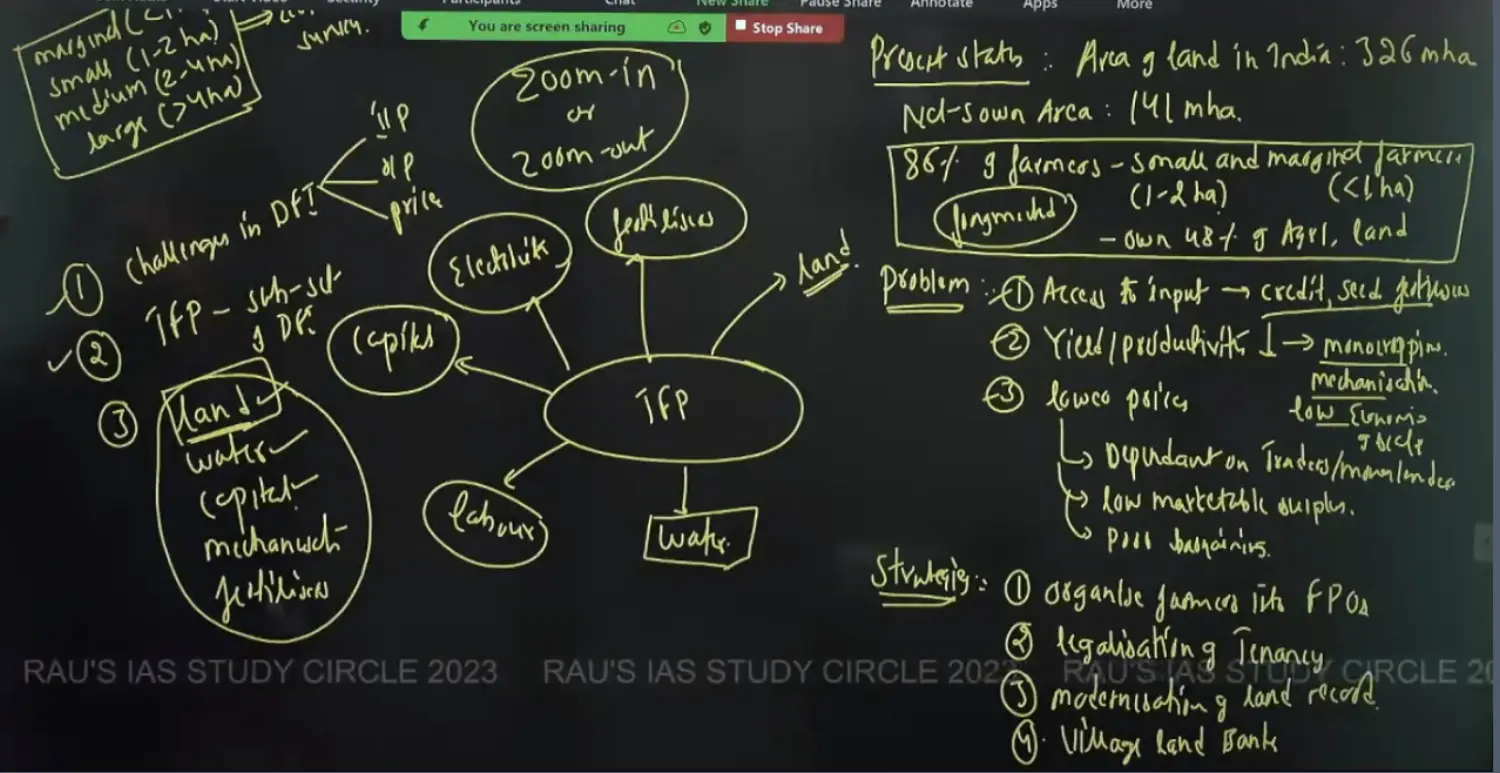 Security
Participants
Chat
New Share
Pause Share
Annotate
Apps
More
You are screen sharing
Stop Share
marginal (
small (1-2 ha)
medium (2-4 ha)
large (>4 ha)
survey.
Zoom-in
or
Zoom-out
① Challenges in DFI
I/P
O/P
price
② TFP - sub-set
of DFI
③ land
water
capital
mechanisatn
fertilisers
TFP
capital
Electricity
fertilisers
land
labour
water
Present status : Area of land in India : 326 mha
Net-sown Area : 141 mha.
86% of farmers - small and marginal farmers
(1-2 ha) (<1 ha)
fragmented
- own 48% of Agri. land
Problem : ① Access to input → credit, seed fertilisers
② Yield/productivity ↓ → monocropping.
mechanisatn.
low Economies
of scale
③ lower prices
↳ Dependant on Traders/moneylenders
↳ low marketable surplus.
↳ poor bargaining.
Strategies : ① organise farmers into FPOs
② legalisation of Tenancy
③ modernisation of land record.
④ Village land Bank
RAU'S IAS STUDY CIRCLE 2023 RAU'S IAS STUDY CIRCLE 2023 RAU'S IAS STUDY CIRCLE 20